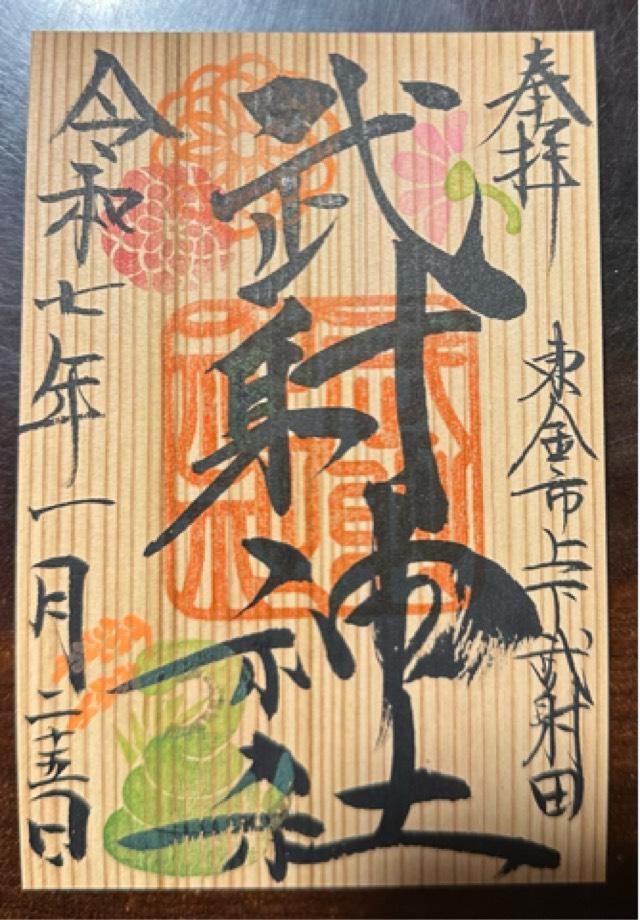 奉拝
東金市上下武射田
武射神社
令和七年一月二十五日